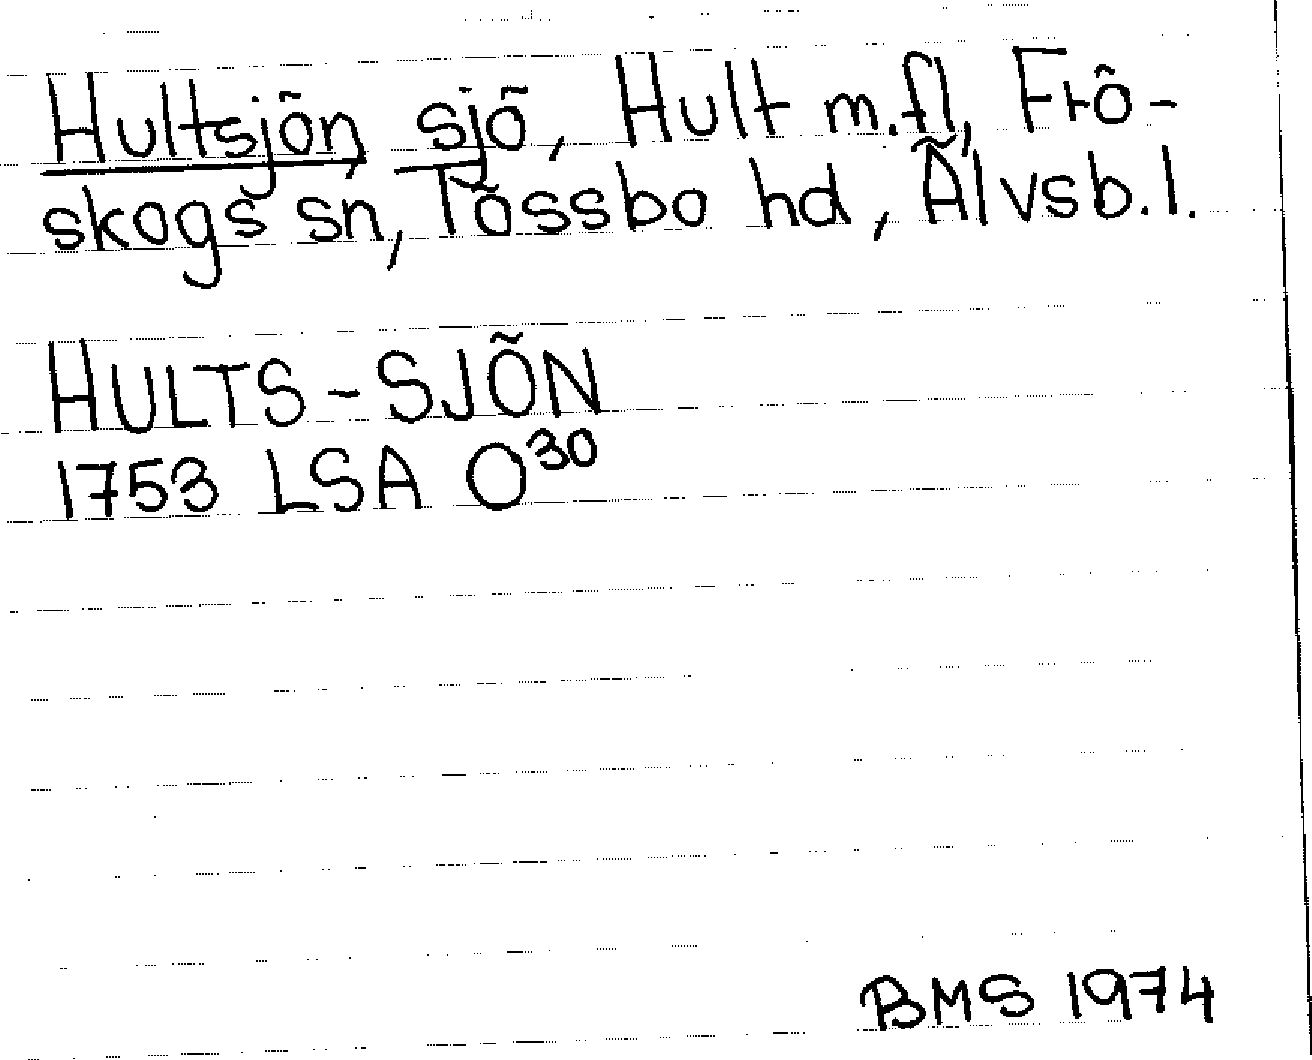 Hultsjön, sjö, Hult m.fl, Frö-
skogs sn, Tössbo hd, Älvsb.l.
HULTS-SJÖN
1753 LSA O³⁰
BMS 1974